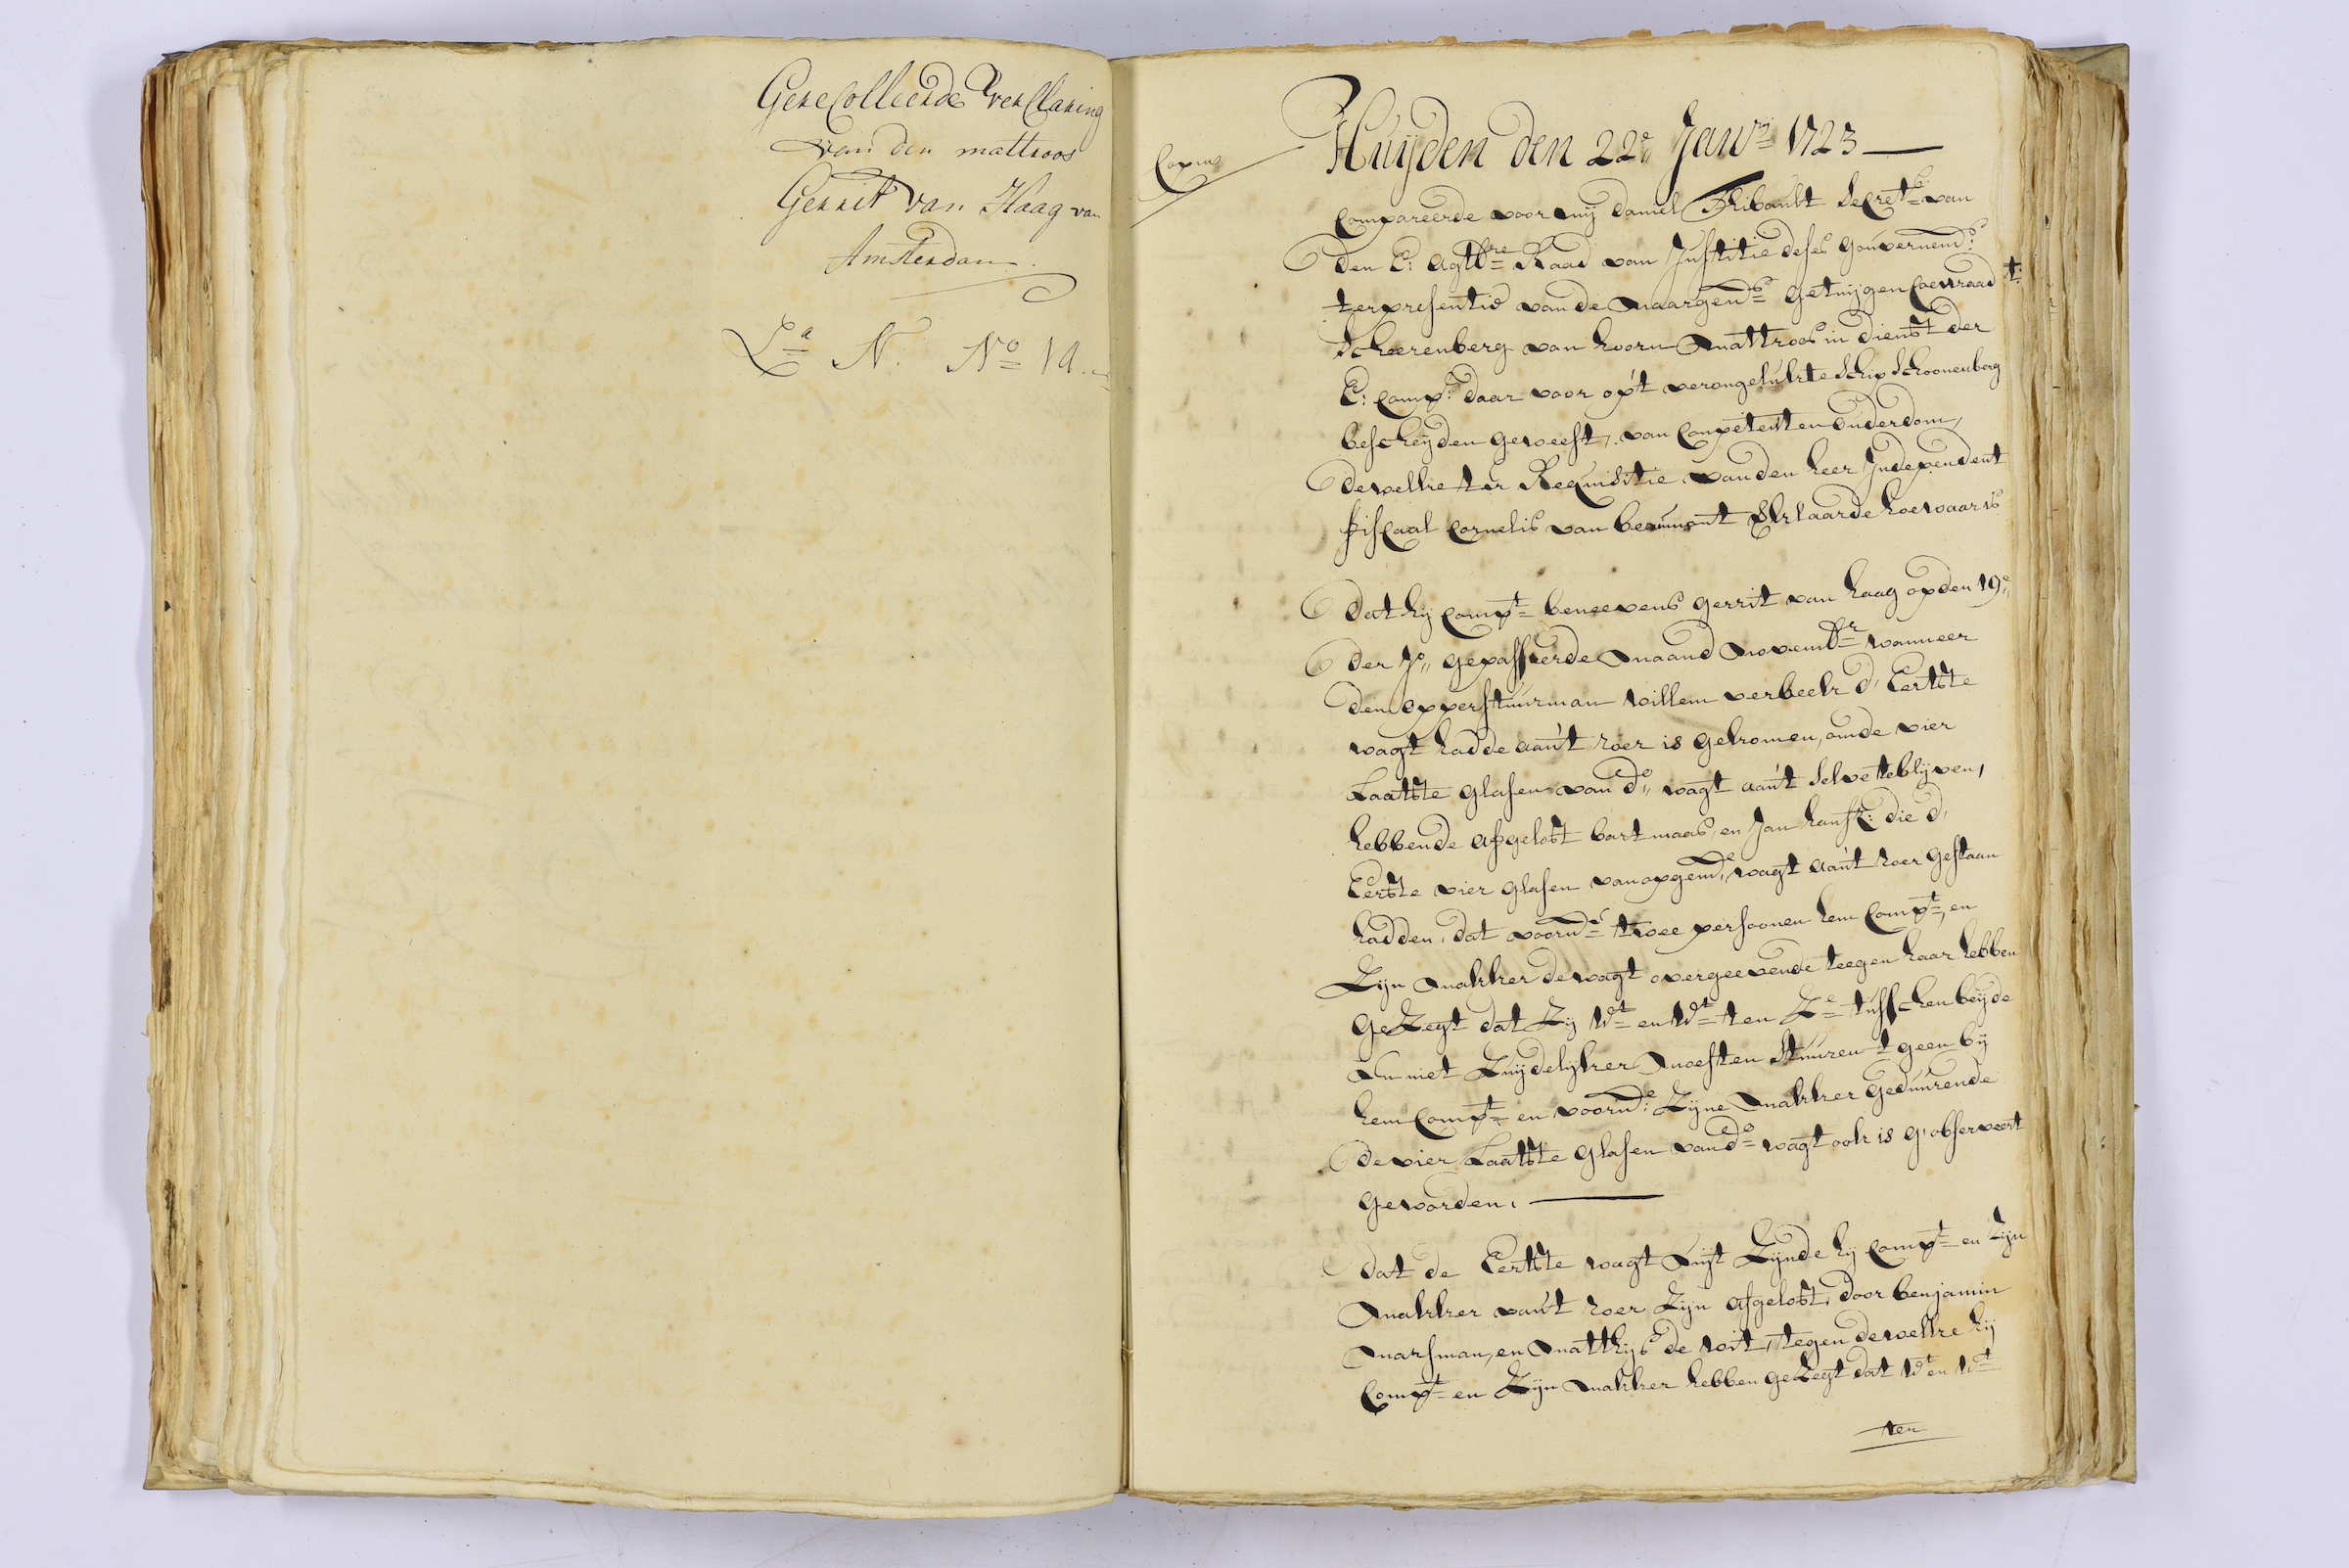 Gerecolleerde verclaring
van den mattroos
Gerrit van Haag van
Amsterdam.
La N. No 19.
Copia
Huijden den 22e Janrij 1723
Compareerde voor mij daniel Thibault Secrets: van
den E: agtbre Raad van Justitie deses gouvernemts:
ter presentie vande naargends getuijgen Coenraad t:
Scheerenberg van hoorn mattroos in dienst der
E: Comp: daar voor op't verongelukte schip Schoonenberg
bescheijden geweest, van Competenten ouderdom,
dewelke ter Requisitie van den heer Independent
fiscaal Cornelis van beaumont verklaarde hoe waar is
dat hij Compt beneevens gerrit van haag op den 19e
der Jo" gepasseerde maand novembr wanneer
den opperstuurman willem verbeek d' Eerste
wagt hadde aan't roer is gekomen, om de vier
Laatste glasen van do" wagt aan't selve te blijven,
hebbende afgelost bart maas, en Jan hansz: die d'
Eerste vier glasen van opgemde, wagt aan't roer gestaan
hadden, dat voornde twee persoonen hem Compt, en
Zijn makker de wagt overgeevende teegen haar hebben
geZegt dat Zij Wt en Wt ten Ze tusschen beijde
en niet Zuijdelijker moesten stuuren 't geen bij
hem Compt en voornde: Zijne makker geduurende
de vier Laatste glasen van do wagt ook is g'observeert
geworden.
dat de Eerste wagt uijt Zijnde hij Compt en Zijn
makker van't roer Zijn afgelost, door benjamin
marsman, en matthijs de wit, tegen dewelke hij
Compt en Zijn makker hebben geZegt dat Wt en Wt
ten